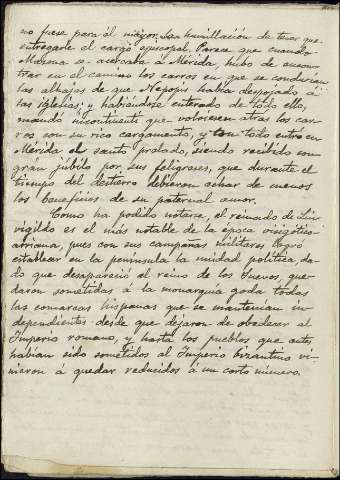 no fuese para él mayor la humillación de tener que
entregarle el cargo episcopal. Parece que cuando
Masona se acercaba á Mérida, hubo de encon-
trar en el camino los carros en que se conducían
las alhajas de que Nepopis había despojado á
las iglesias; y habiéndose enterado de todo ello,
mandó incontinenti que volviesen atras los car-
ros con su rico cargamento, y con todo entró en
Mérida el santo prelado, siendo recibido con
grán júbilo por sus feligreses, que durante el
tiempo del destierro debieron echar de menos
los beneficios de su paternal amor.
Como ha podido notarse, el reinado de Leovi-
vigildo es el más notable de la época visigótico-
arriana, pues con sus campañas militares logró
establecer en la península la unidad política, da-
do que desapareció el reino de los Suevos, que-
daron sometidas á la monarquía goda todas
las comarcas hispanas que se mantenian in-
dependientes desde que dejaron de obedecer al
Imperio romano, y hasta los pueblos que antes
habían sido sometidos al Imperio bizantino vi-
nieron á quedar reducidos á un corto número.